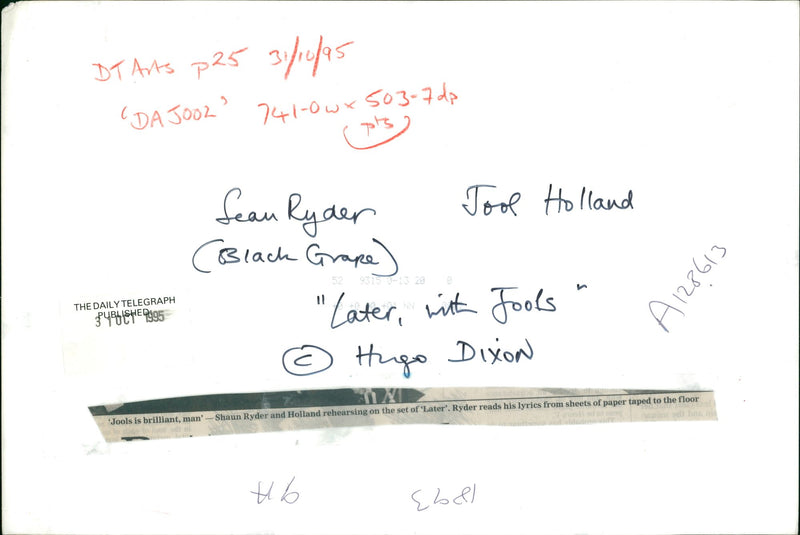 DT Arts p25 31/10/95
'DAJ002' 741-0w x 503-7dp
pts
Sean Ryder Jool Holland
(Black Grape)
"Later, with Jools"
© Hugo Dixon
A128613
THE DAILY TELEGRAPH
PUBLISHED
31 OCT 1995
'Jools is brilliant, man' — Shaun Ryder and Holland rehearsing on the set of 'Later'. Ryder reads his lyrics from sheets of paper taped to the floor